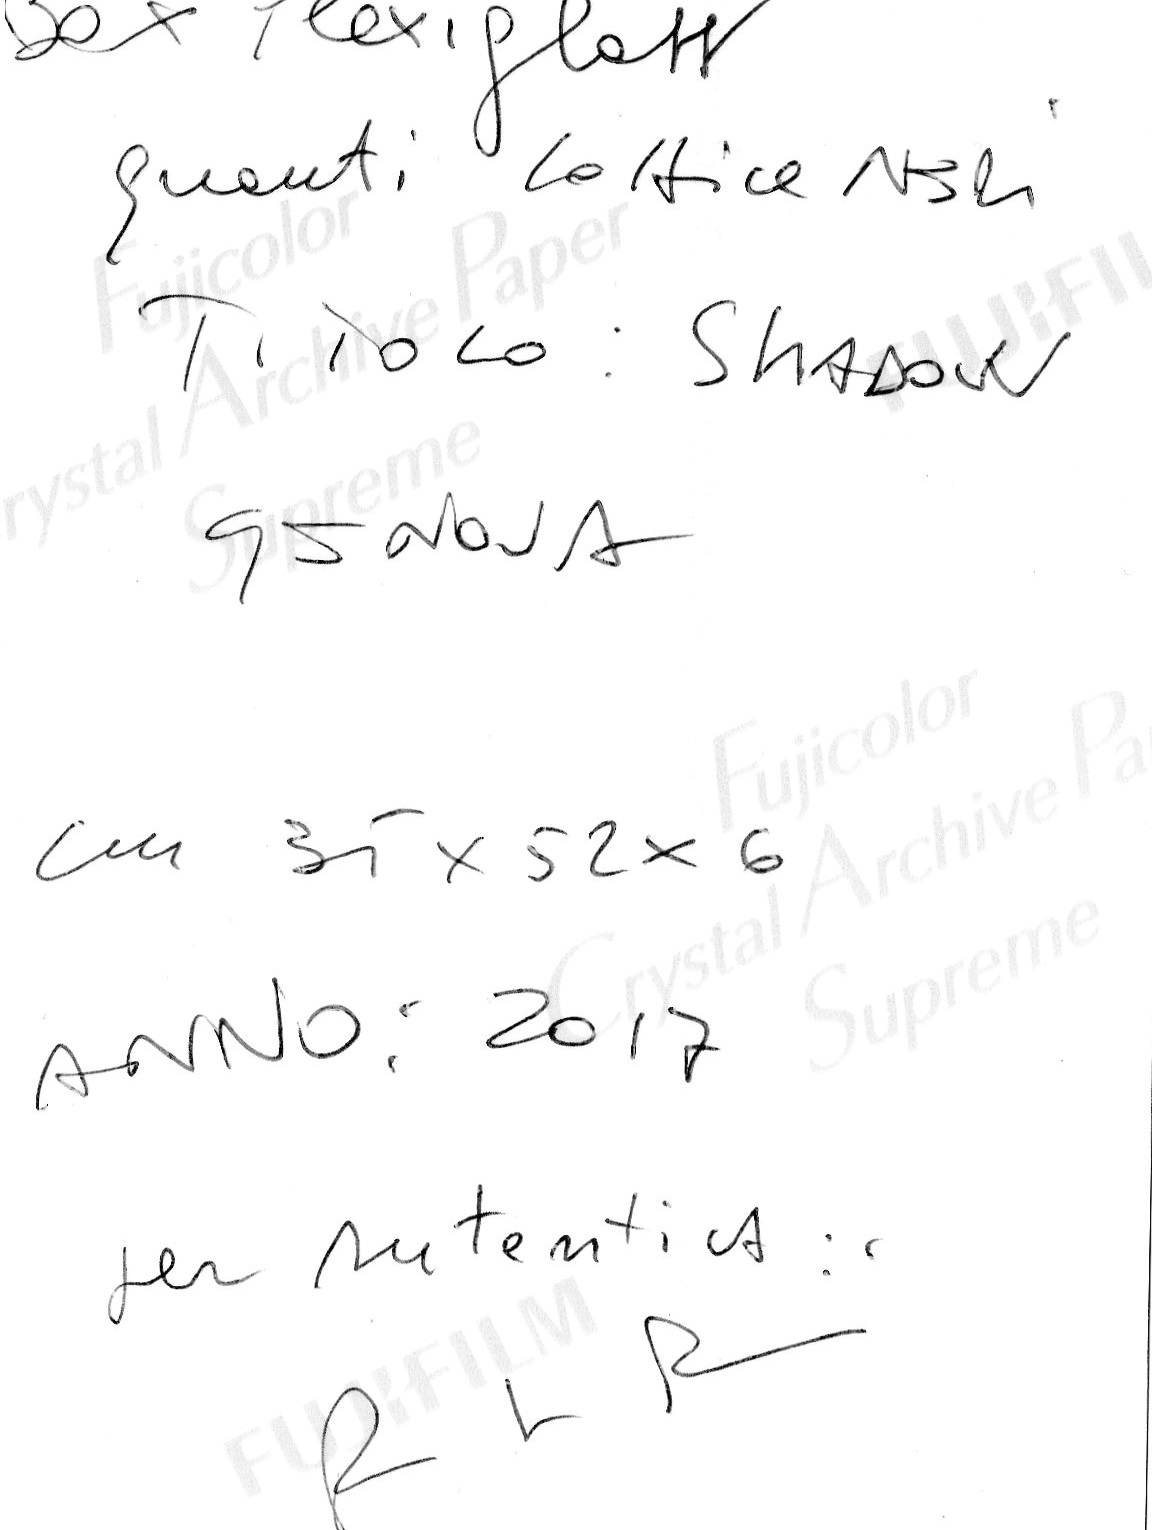 Box Plexiglass
guanti Lattice
TITOLO: SHADOW
95 NOVA
cm 35 x 52 x 6
ANNO: 2017
per Autentica:
Fujicolor
Crystal Archive Paper
Supreme
FUJIFILM
Fujicolor
Crystal Archive Pa
Supreme
FUJIFILM